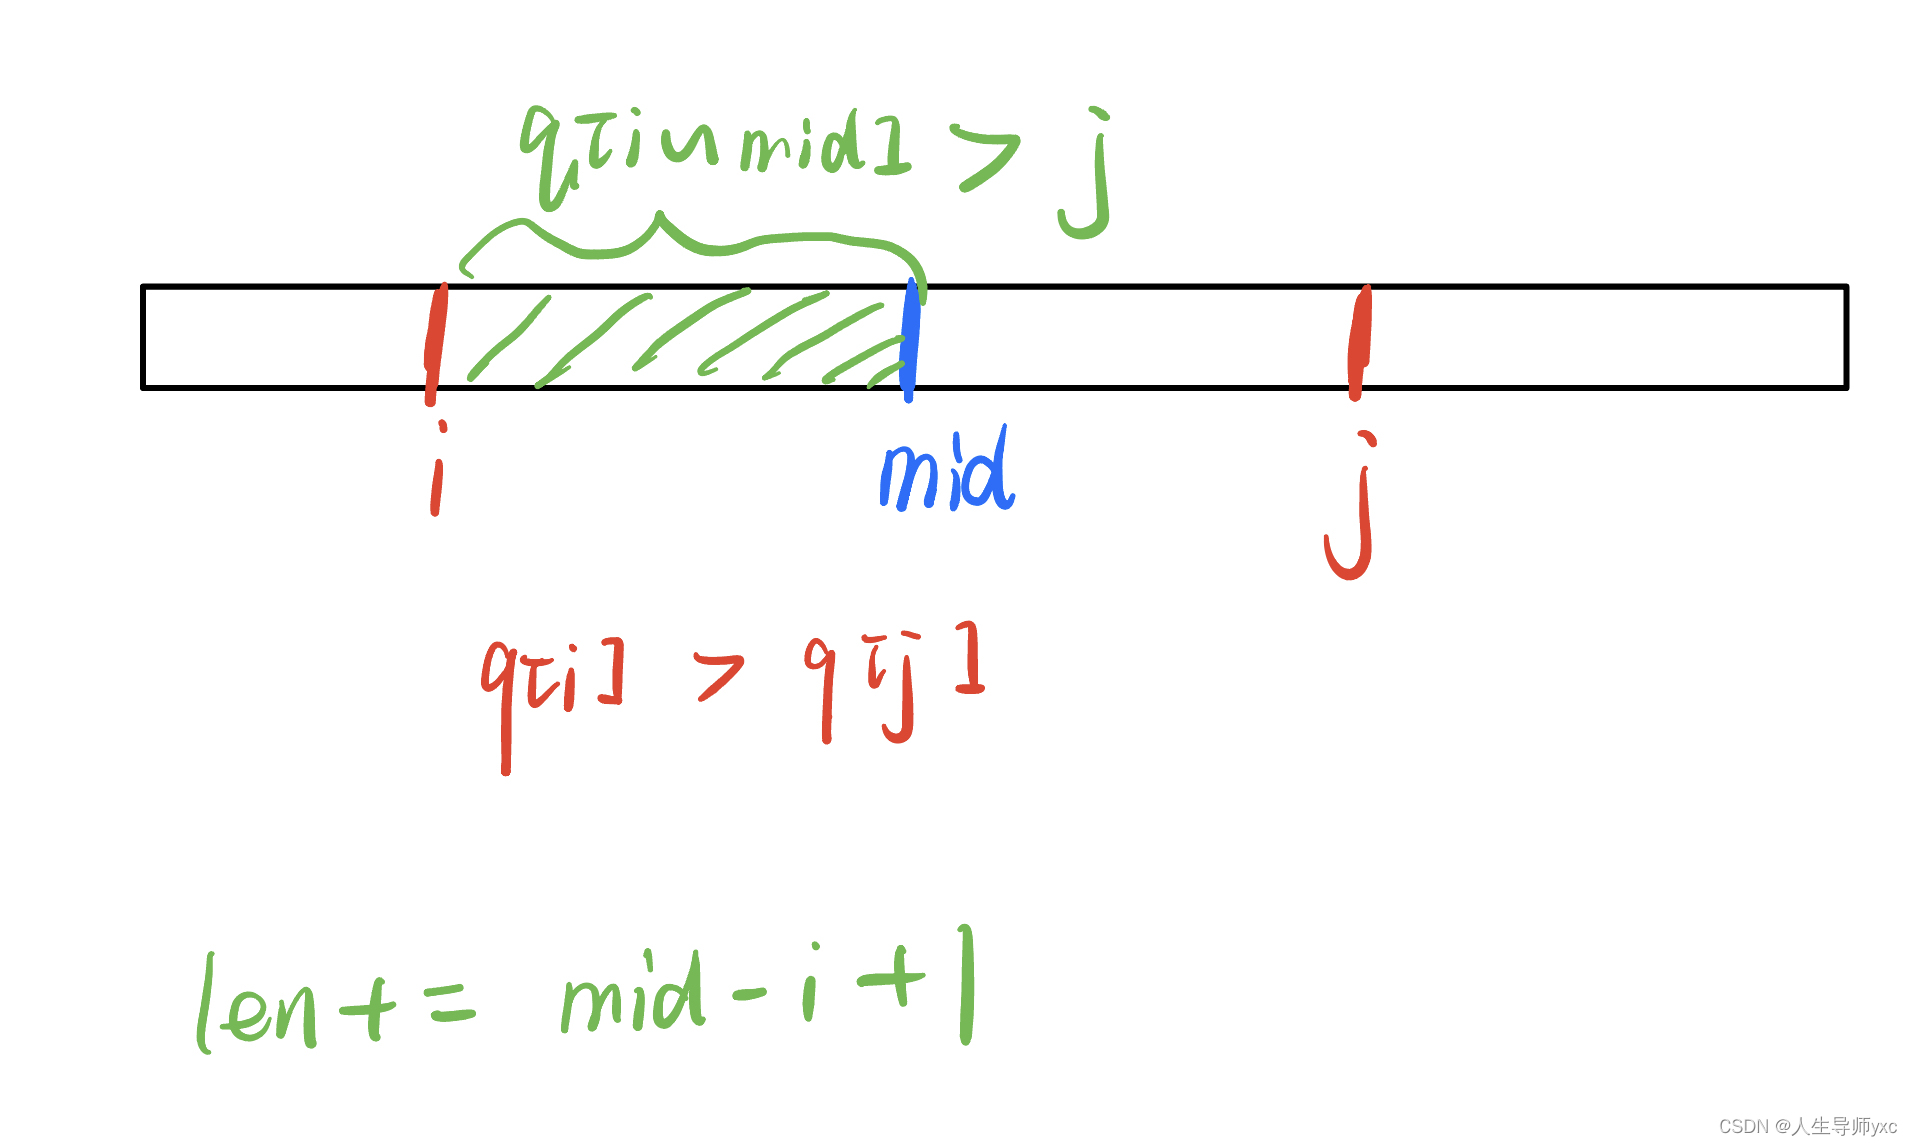 q[i~mid] > j
i
mid
j
q[i] > q[j]
len += mid - i + 1
CSDN @人生导师yxc